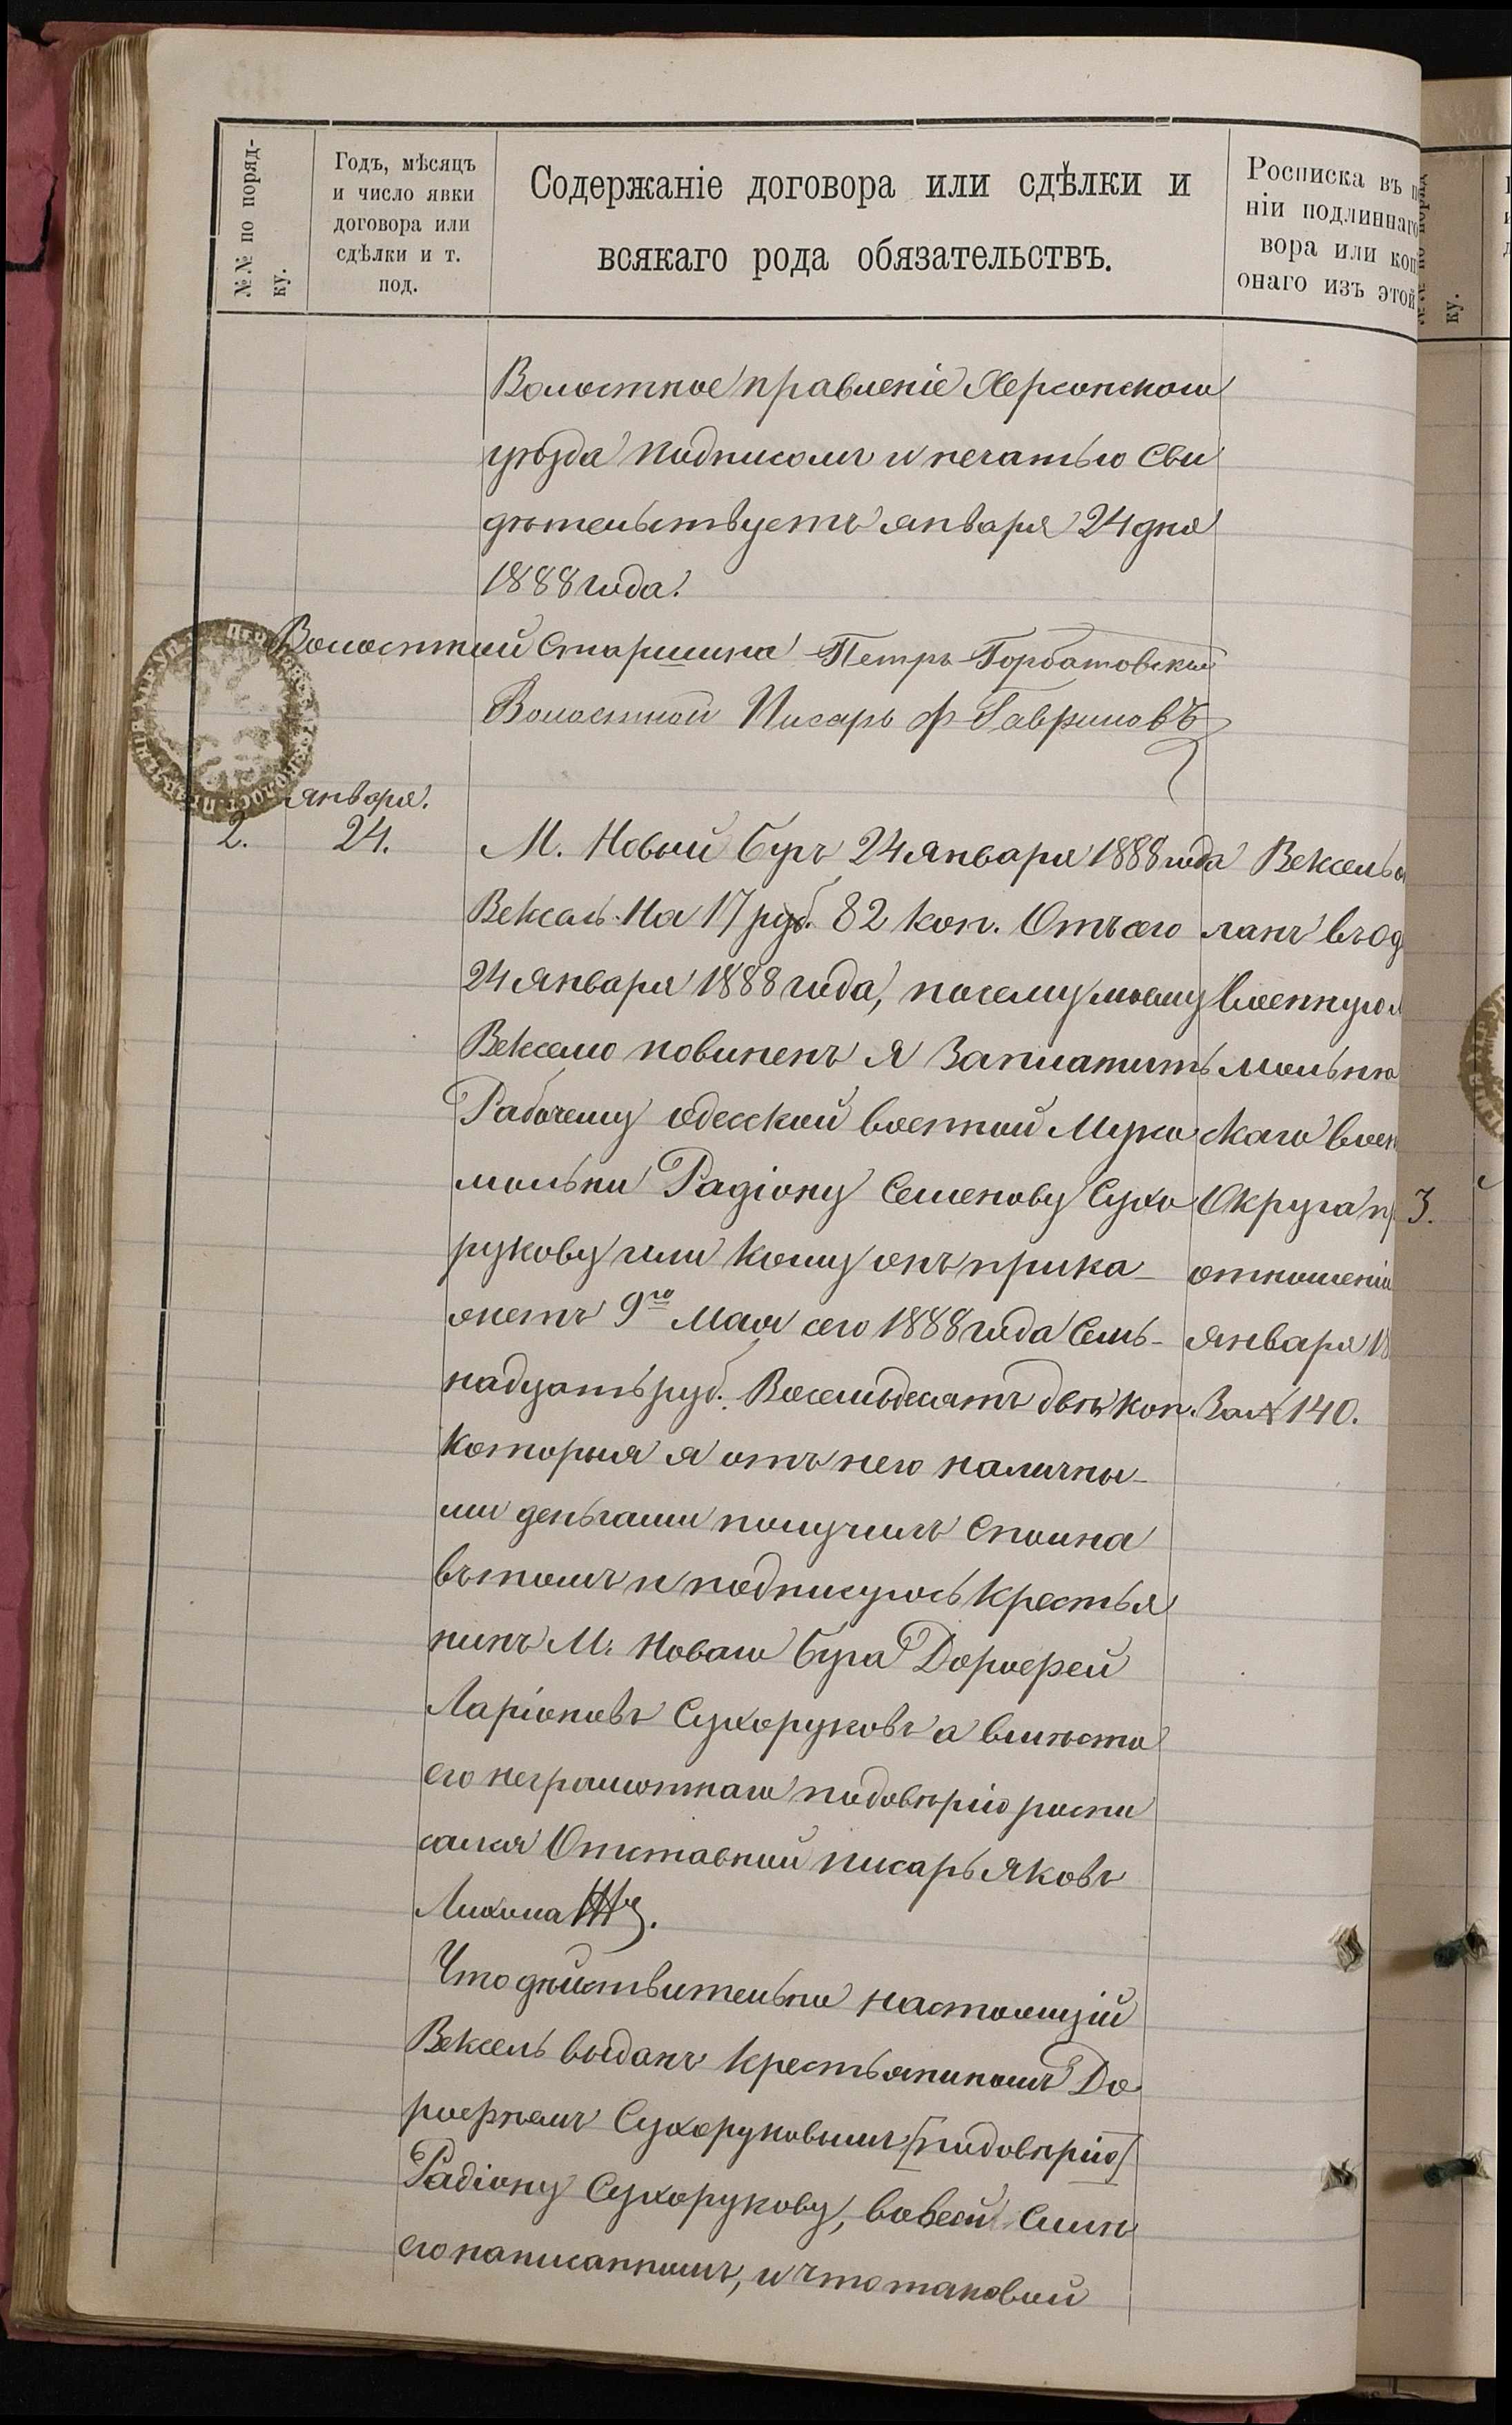 №№ по поряд-
ку.
Годъ, мѣсяцъ
и число явки
договора или
сдѣлки и т.
под.
Содержаніе договора или сдѣлки и
всякаго рода обязательствъ.
Росписка въ
ніи подлиннаго
вора или коп
онаго изъ этой
ку.
Волостное правленіе Херсонскаго
уѣзда подписомъ и печатью Сви
дѣтельствуетъ января 24 дня
1888 года.
Волостной Старшина Петръ Горбатовскій
Волостной Писарь Ф Гавриловъ
января.
2. 24.
М. Новый Бугъ 24 января 1888 года
Вексель На 17 руб. 82 коп. Отъ сего
24 января 1888 года, посему моему
Векселю повиненъ я Заплатить
Рабочему одесской военной Муко
мольни Радіону Семенову Сухо
рукову или кому онъ прика-
жетъ 9го мая сего 1888 года Семь-
надцать руб. Восемьдесятъ двѣ коп.
которыя я отъ него наличны-
ми деньгами получилъ Сполна
въ томъ и подписуюсь Крестья
нинъ М. Новаго Буга Дорофей
Ларіоновъ Сухоруковъ а вмѣсто
его неграмотнаго подовѣрію роспи
сался Отставной писарь Яковъ
Что дѣйствительно настоящій
Вексель выданъ Крестьяниномъ До
рофѣемъ Сухоруковымъ [подовѣрію]
Радіону Сухорукову, вовсей Силѣ
его написанномъ, и что таковый
Вексель
ланъ въ Од
Военную
мольню
скаго воен
Округа
отношеніи
января 18
За № 140.
3.